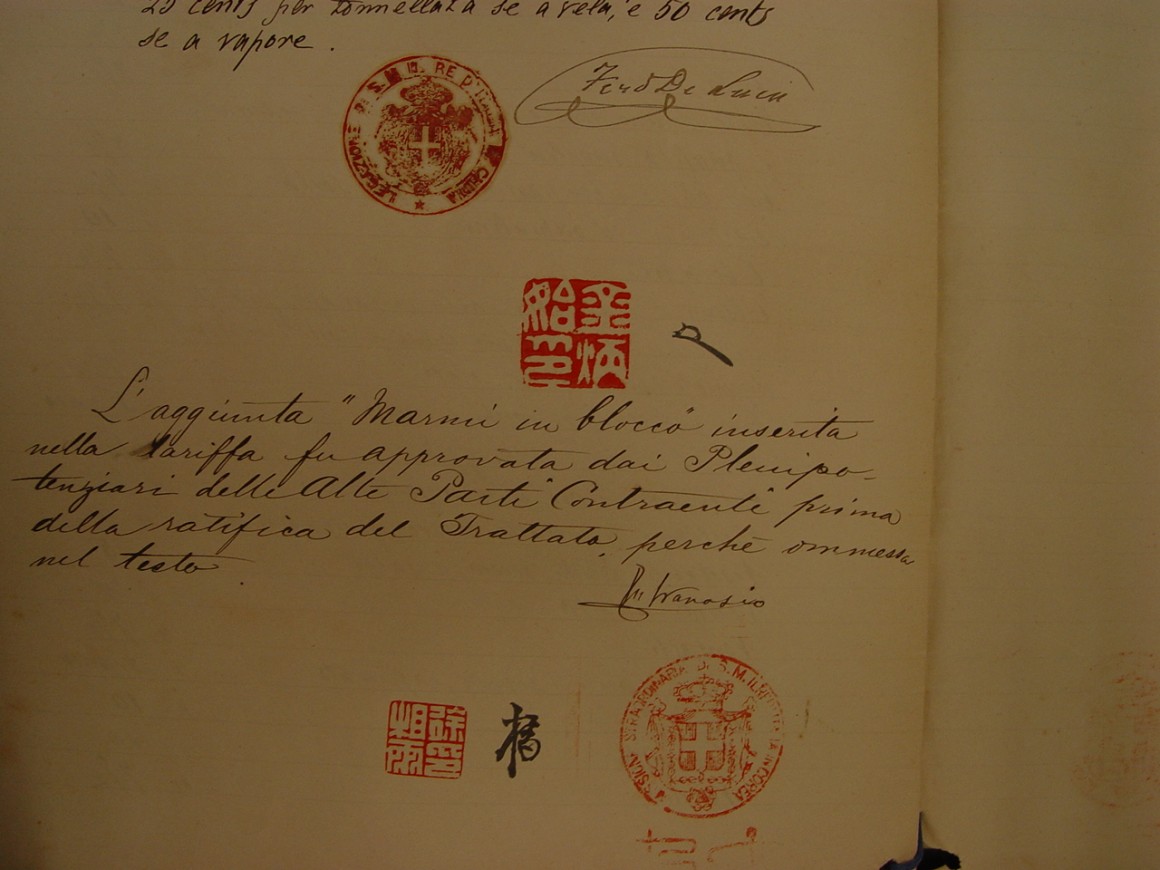 25 cents per tonnellata se a vela, e 50 cents
se a vapore.
LEGAZIONE DI S. M. IL RE D'ITALIA IN CHINA
Ferd De Luca
金炳
始印
L'aggiunta "Marmi in blocco" inserita
nella tariffa fu approvata dai Plenipo-
tenziari delle Alte Parti Contraenti prima
della ratifica del Trattato, perchè ommessa
nel testo.
徐印
相雨
STRAORDINARIA DI S. M. IL RE D'ITALIA IN COREA